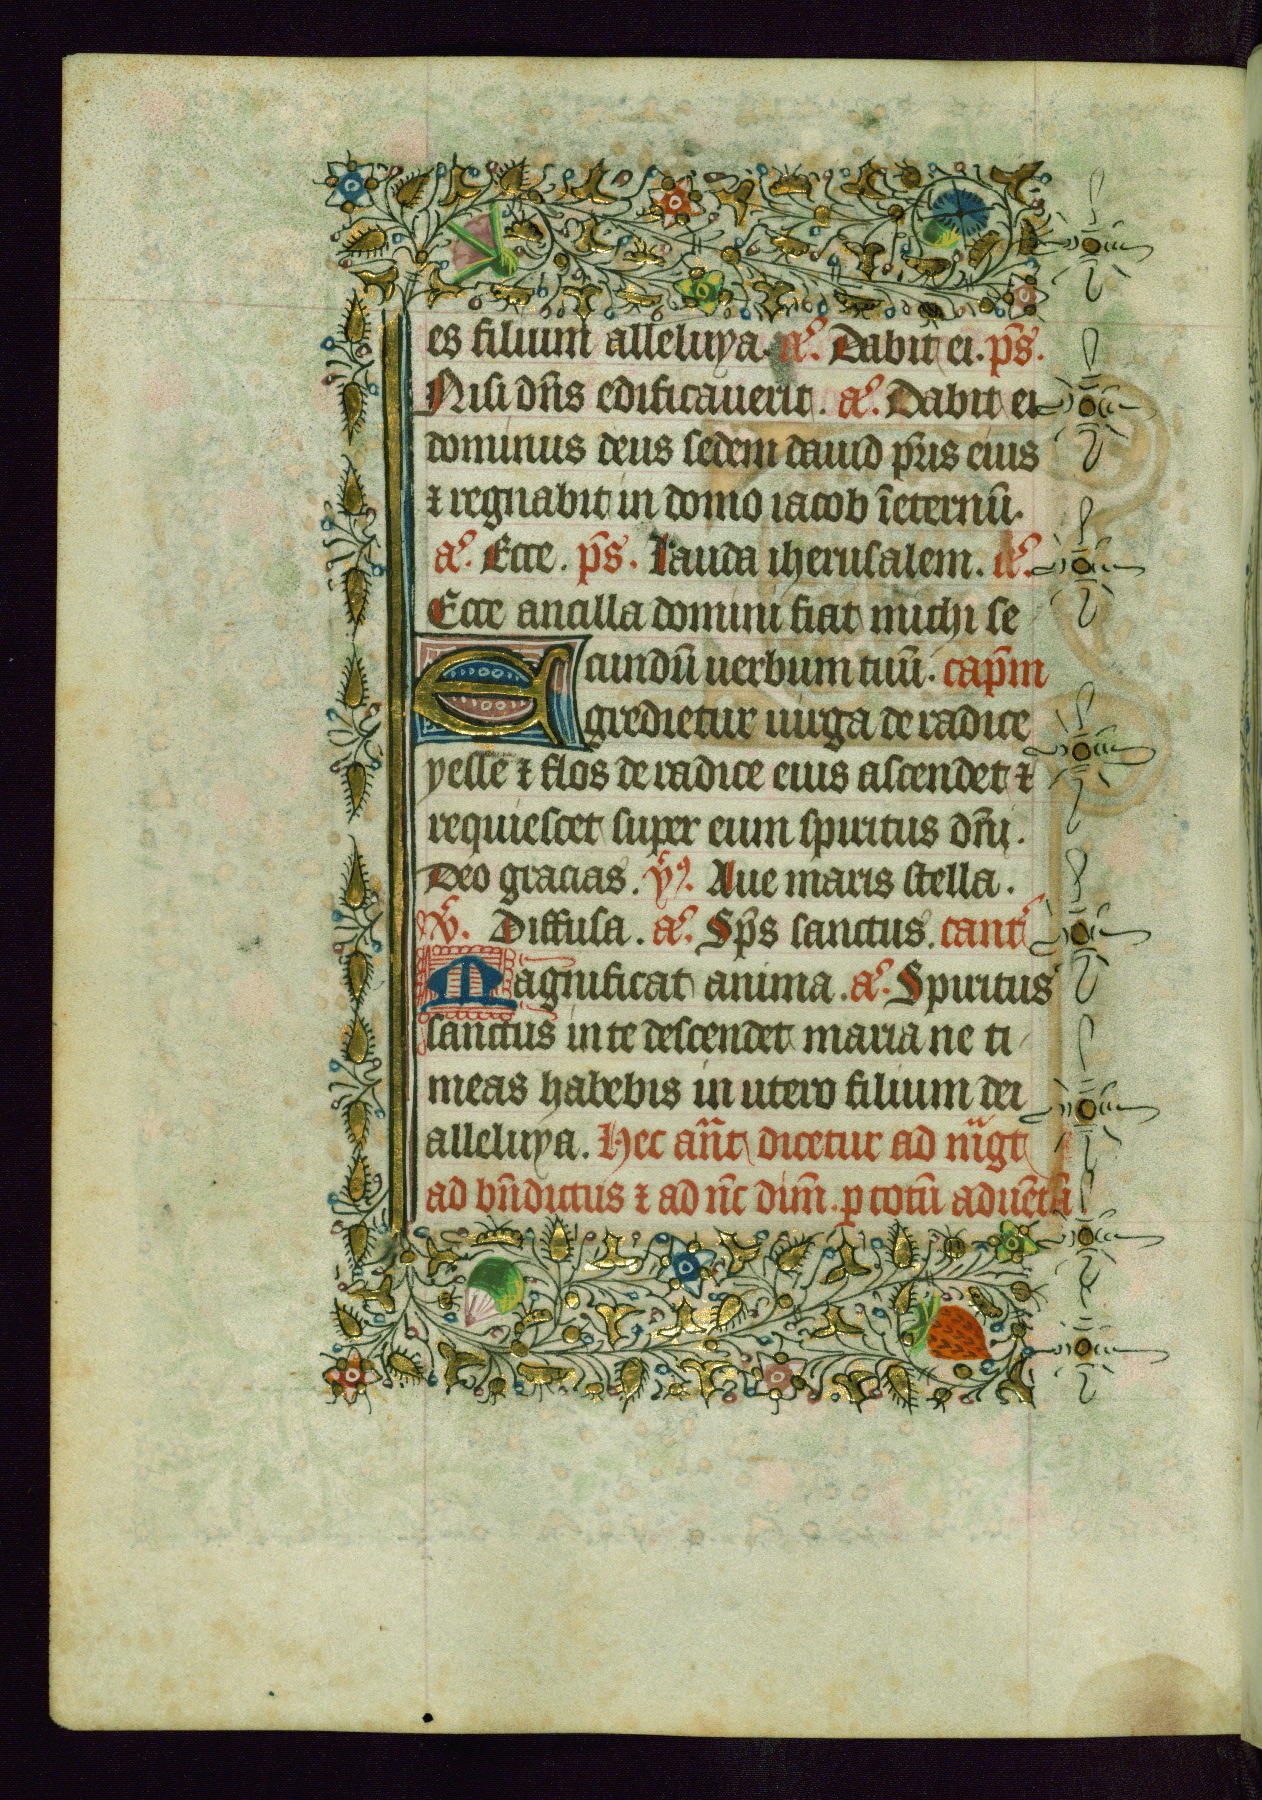 es filium alleluya. aͣ. Dabit ei. ps̄.
Nisi dn̄s edificauerit. aͣ. Dabit ei
dominus deus sedem dauid pr̄is eius
⁊ regnabit in domo iacob īeternū.
aͣ. Ecce. ps̄. Lauda iherusalem. aͣ.
Ecce ancilla domini fiat michi se
cundū uerbum tuū. cap̄m
Egredietur uirga de radice
yesse ⁊ flos de radice eius ascendet ⁊
requiescet super eum spiritus dn̄i.
Deo gracias. ym̄9. Aue maris stella.
v̄. Diffusa. aͣ. Sp̄s sanctus. cant̄
Magnificat anima. aͣ. Spiritus
sanctus in te descendet maria ne ti
meas habebis in utero filium dei
alleluya. Hec an̄t dicetur ad m̄igt
ad bn̄dictus ⁊ ad nc̄ dim̄. p totū aduētū